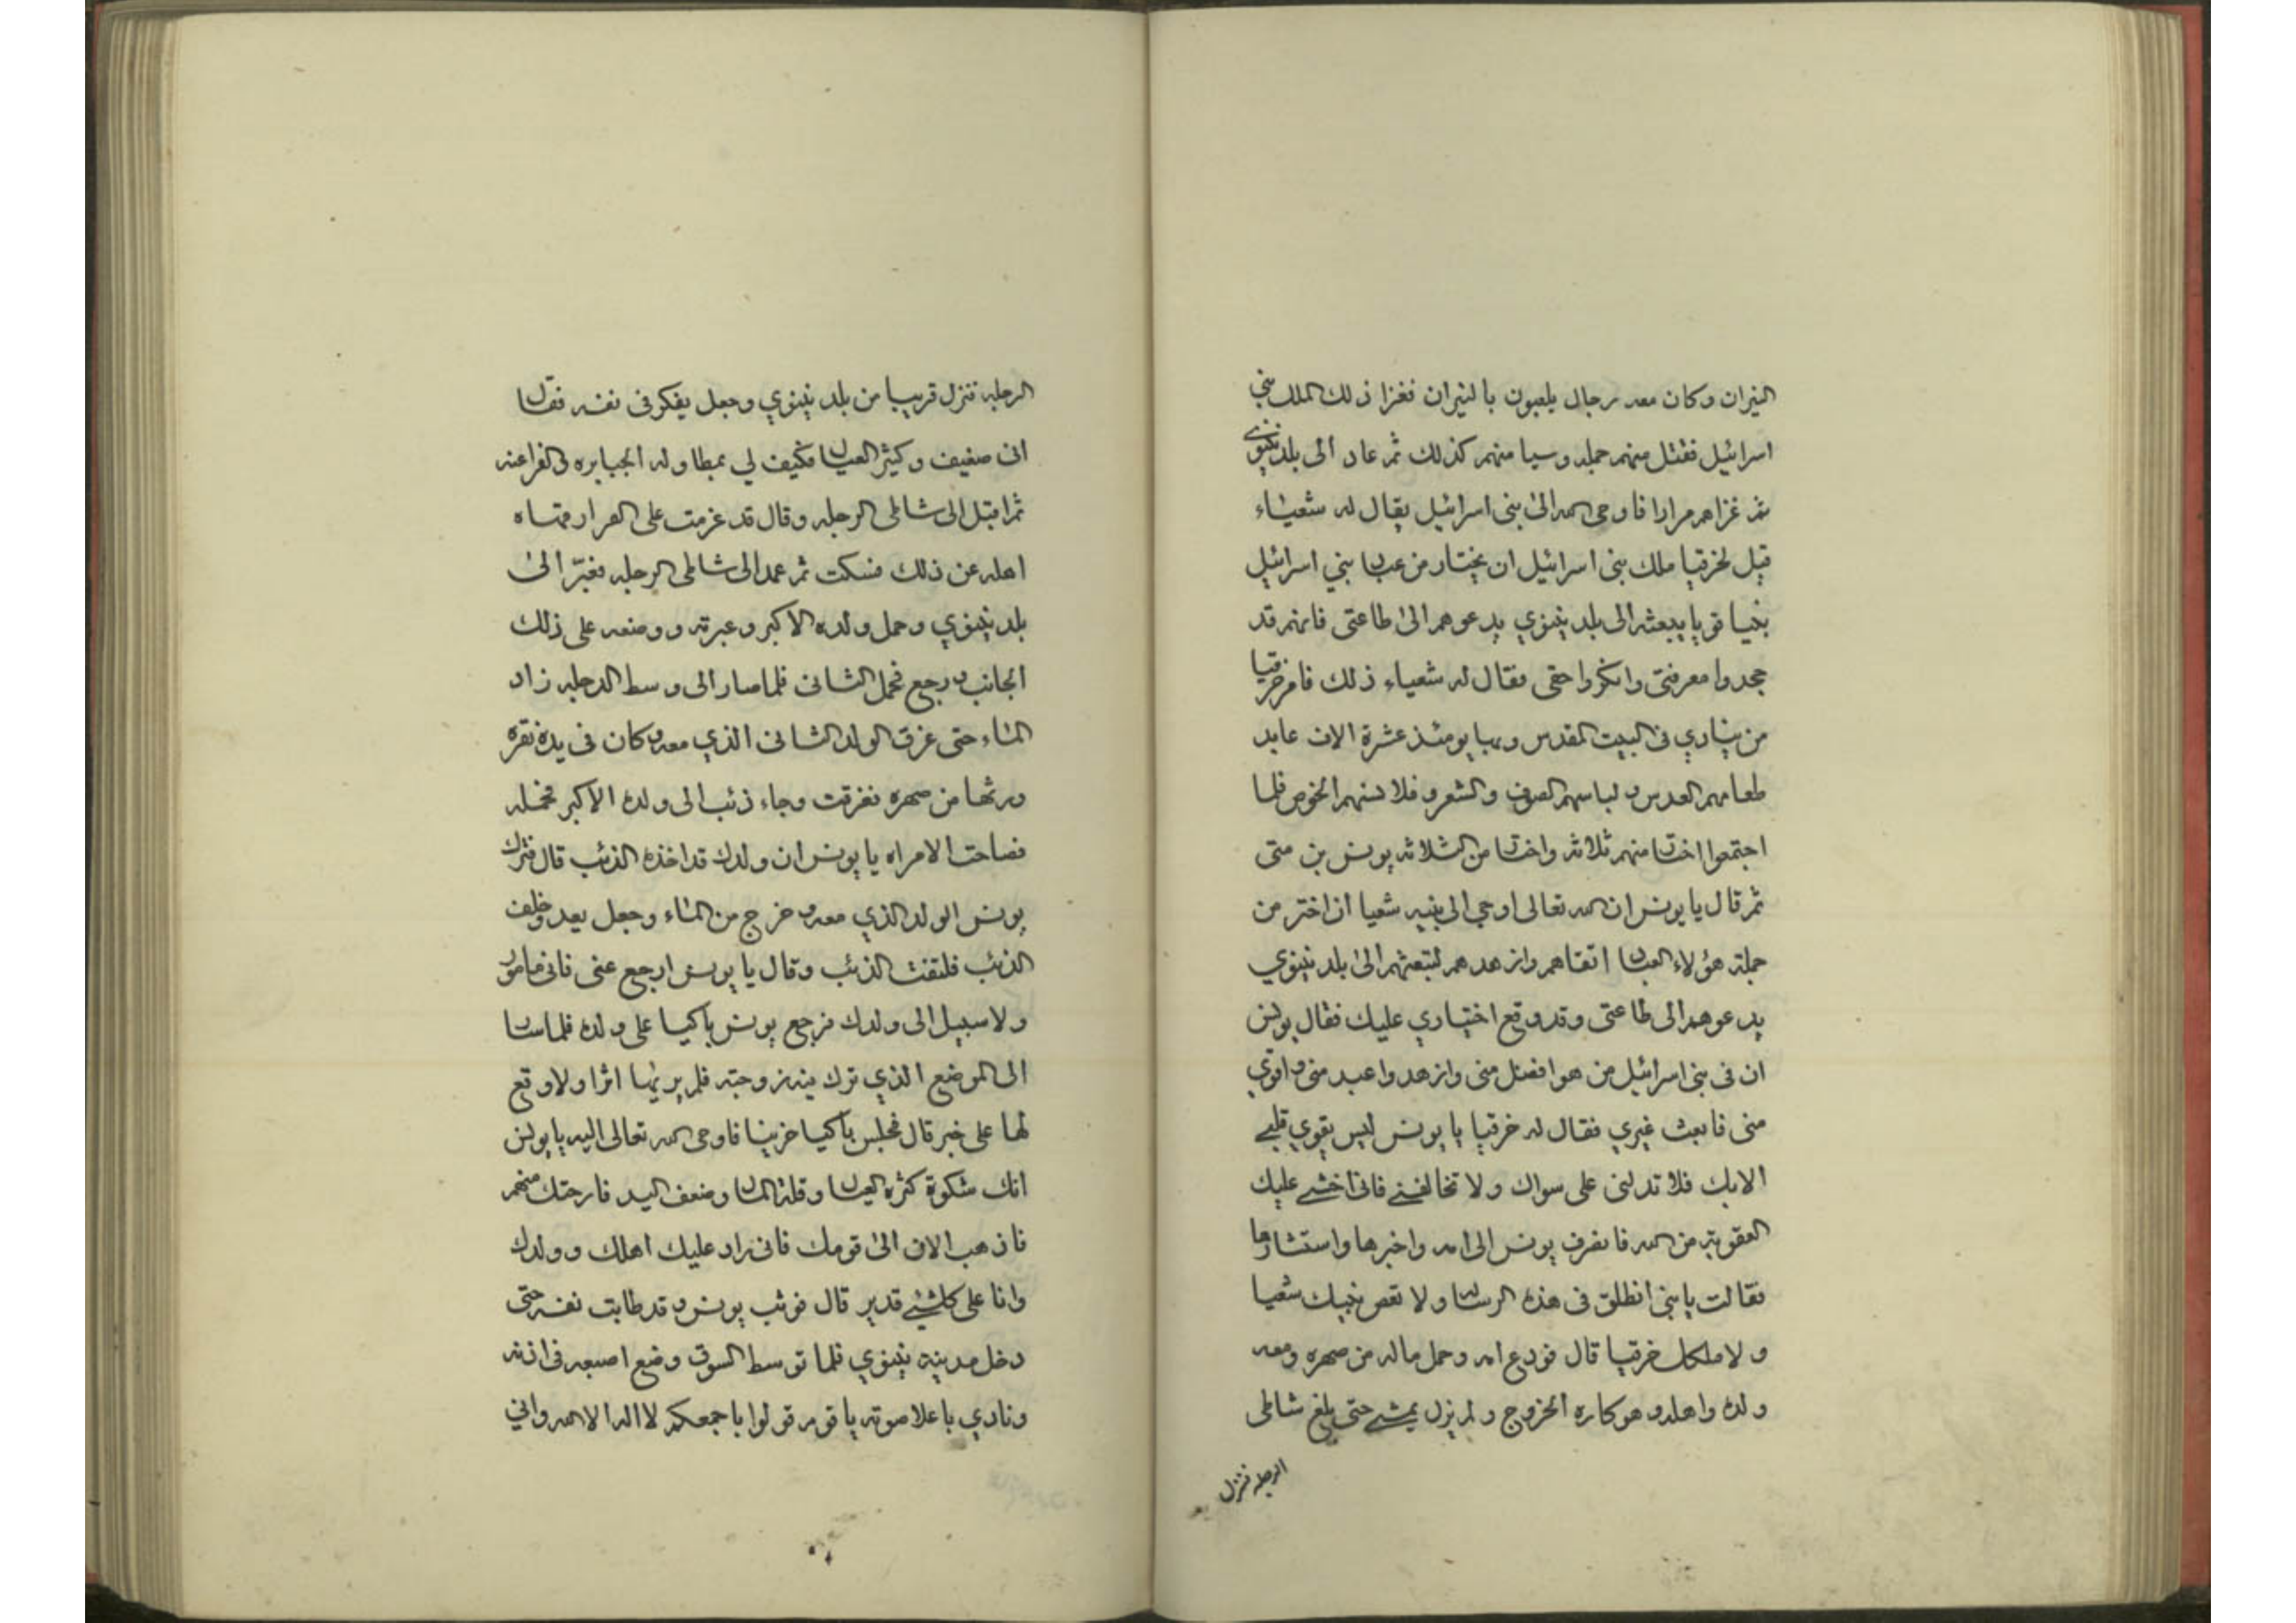 النيران وكان معه رجال يلعبون بالنيران فغزا ذلك الملك بني
اسرائيل فقتل منهم جمله وسبا منهم كذلك ثم عاد الى بلد نينوى
ثم غزاهم مرارا فاوحى الله الى بنى اسرائيل يقال له شعياء
قيل لخزقيا ملك بنى اسرائيل ان يختار من عباد بني اسرائيل
نبيا قويا يبعثه الى بلد نينوي يدعوهم الى طاعتى فانهم قد
جحدوا معرفتى وانكروا حقى فقال له شعياء ذلك فامر خزقيا
من ينادي فى البيت المقدس وبها يومئذ عشرة الاف عابد
طعامهم العدس ولباسهم الصوف والشعر وقلانسهم الخوص فلما
اجتمعوا اختار منهم ثلاثه واختار من الثلاثه يونس بن متى
ثم قال يا يونس ان الله تعالى اوحى الى نبيه شعيا ان اختر من
جملة هؤلاء العباد اتقاهم وازهدهم لتبعثهم الى بلد نينوي
يدعوهم الى طاعتى وقد وقع اختياري عليك فقال يونس
ان فى بنى اسرائيل من هو افضل منى وازهد واعبد منى واقوي
منى فابعث غيري فقال له خزقيا يا يونس ليس يقوي قلبى
الا بك فلا تدلنى على سواك ولا تخالفنى فانى اخشى عليك
العقوبة من الله فانصرف يونس الى امه واخبرها واستشارها
فقالت يا بني انطلق فى هذه الرساله ولا تعص نبيك شعيا
ولا ملكك خزقيا قال فودع امه وحمل ماله من صهره ومعه
ولده واهله وهو كاره الخروج ولم يزل يمشى حتى بلغ شاطى
الدجله فنزل
الدجله فنزل قريبا من بلد نينوي وجعل يفكر فى نفسه فقال
انى ضعيف وكثير العيال فكيف لي بمطاوله الجبابره و الفراعنه
ثم اقبل الى شاطى الدجله وقال قد عزمت على الفرار فنهاه
اهله عن ذلك فسكت ثم عمد الى شاطى الدجله فعبر الى
بلد نينوي وحمل ولده الاكبر وعبر به ووضعه على ذلك
الجانب ورجع فحمل الثانى فلما صار الى وسط الدجله زاد
الماء حتى غرق الولد الثانى الذي معه وكان فى يده نقره
ورثها من صهره فغرقت وجاء ذئب الى ولده الاكبر فحمله
فصاحت الامراه يا يونس ان ولدك قد اخذه الذئب قال فترك
يونس الولد الذي معه وخرج من الماء وجعل يعدو خلف
الذئب فلتفت الذئب وقال يا يونس ارجع عنى فانى مامور
ولا سبيل الى ولدك فرجع يونس باكيا على ولده فلما سار
الى الموضع الذي ترك فيه زوجته فلم ير لها اثرا ولا وقع
لها على خبر قال فجلس باكيا حزينا فاوحى الله تعالى اليه يا يونس
انك شكوة كثره العيال وقلة المال وضعف اليد فارحتك منهم
فاذهب الان الى قومك فانى راد عليك اهلك وولدك
وانا على كل شىء قدير قال فوثب يونس وقد طابت نفسه حتى
دخل مدينة نينوي فلما توسط السوق وضع اصبعه فى اذنه
ونادي باعلا صوته يا قوم قولوا باجمعكم لا اله الا الله واني